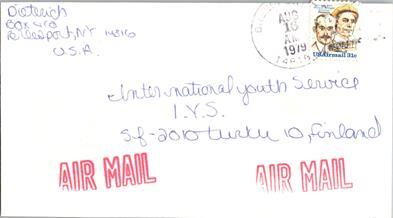 Dieterich
Box 413
U.S.A.
AUG
16
AM
1979
USAirmail 31c
International Youth Service
I.Y.S.
Sf-2010 Turku 10, Finland
AIR MAIL
AIR MAIL